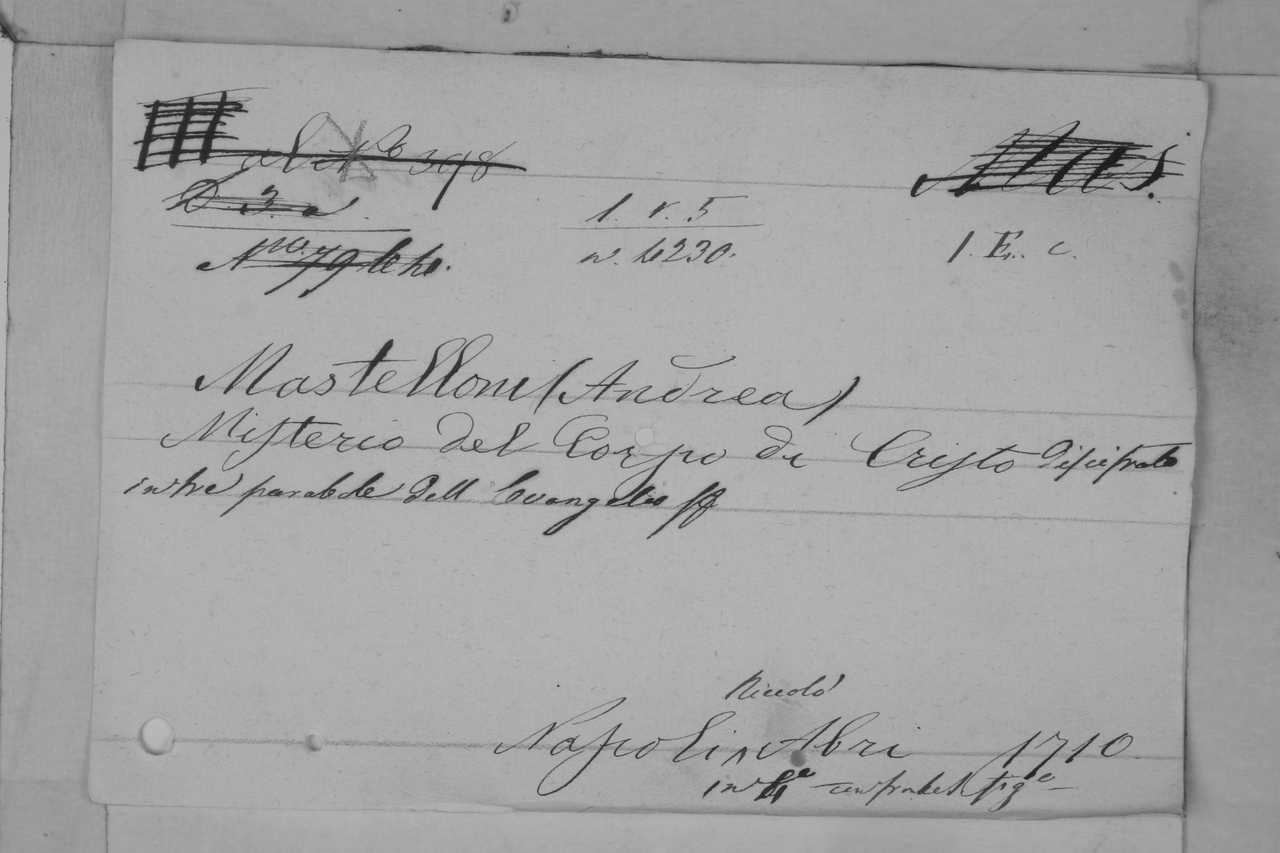 398
D 3. a
N.ro 79
1. v. 5
n. 4230.
Mas.
1. E. c.
Mastelloni (Andrea)
Misterio del Corpo di Cristo discifrato
in tre parabole dell Evangelio
Niccolò
Napoli Abri 1710
in 4°